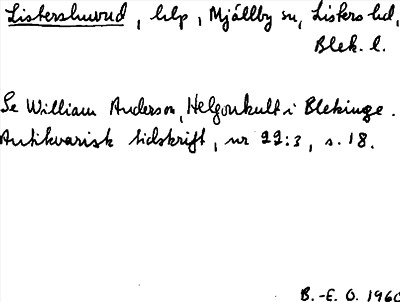 Listershuvud, hlp, Mjällby sn, Listers hd,
Blek. l.
Se William Anderson, Helgonkult i Blekinge.
Antikvarisk tidskrift, nr 22:3, s. 18.
B.-E. O. 1960